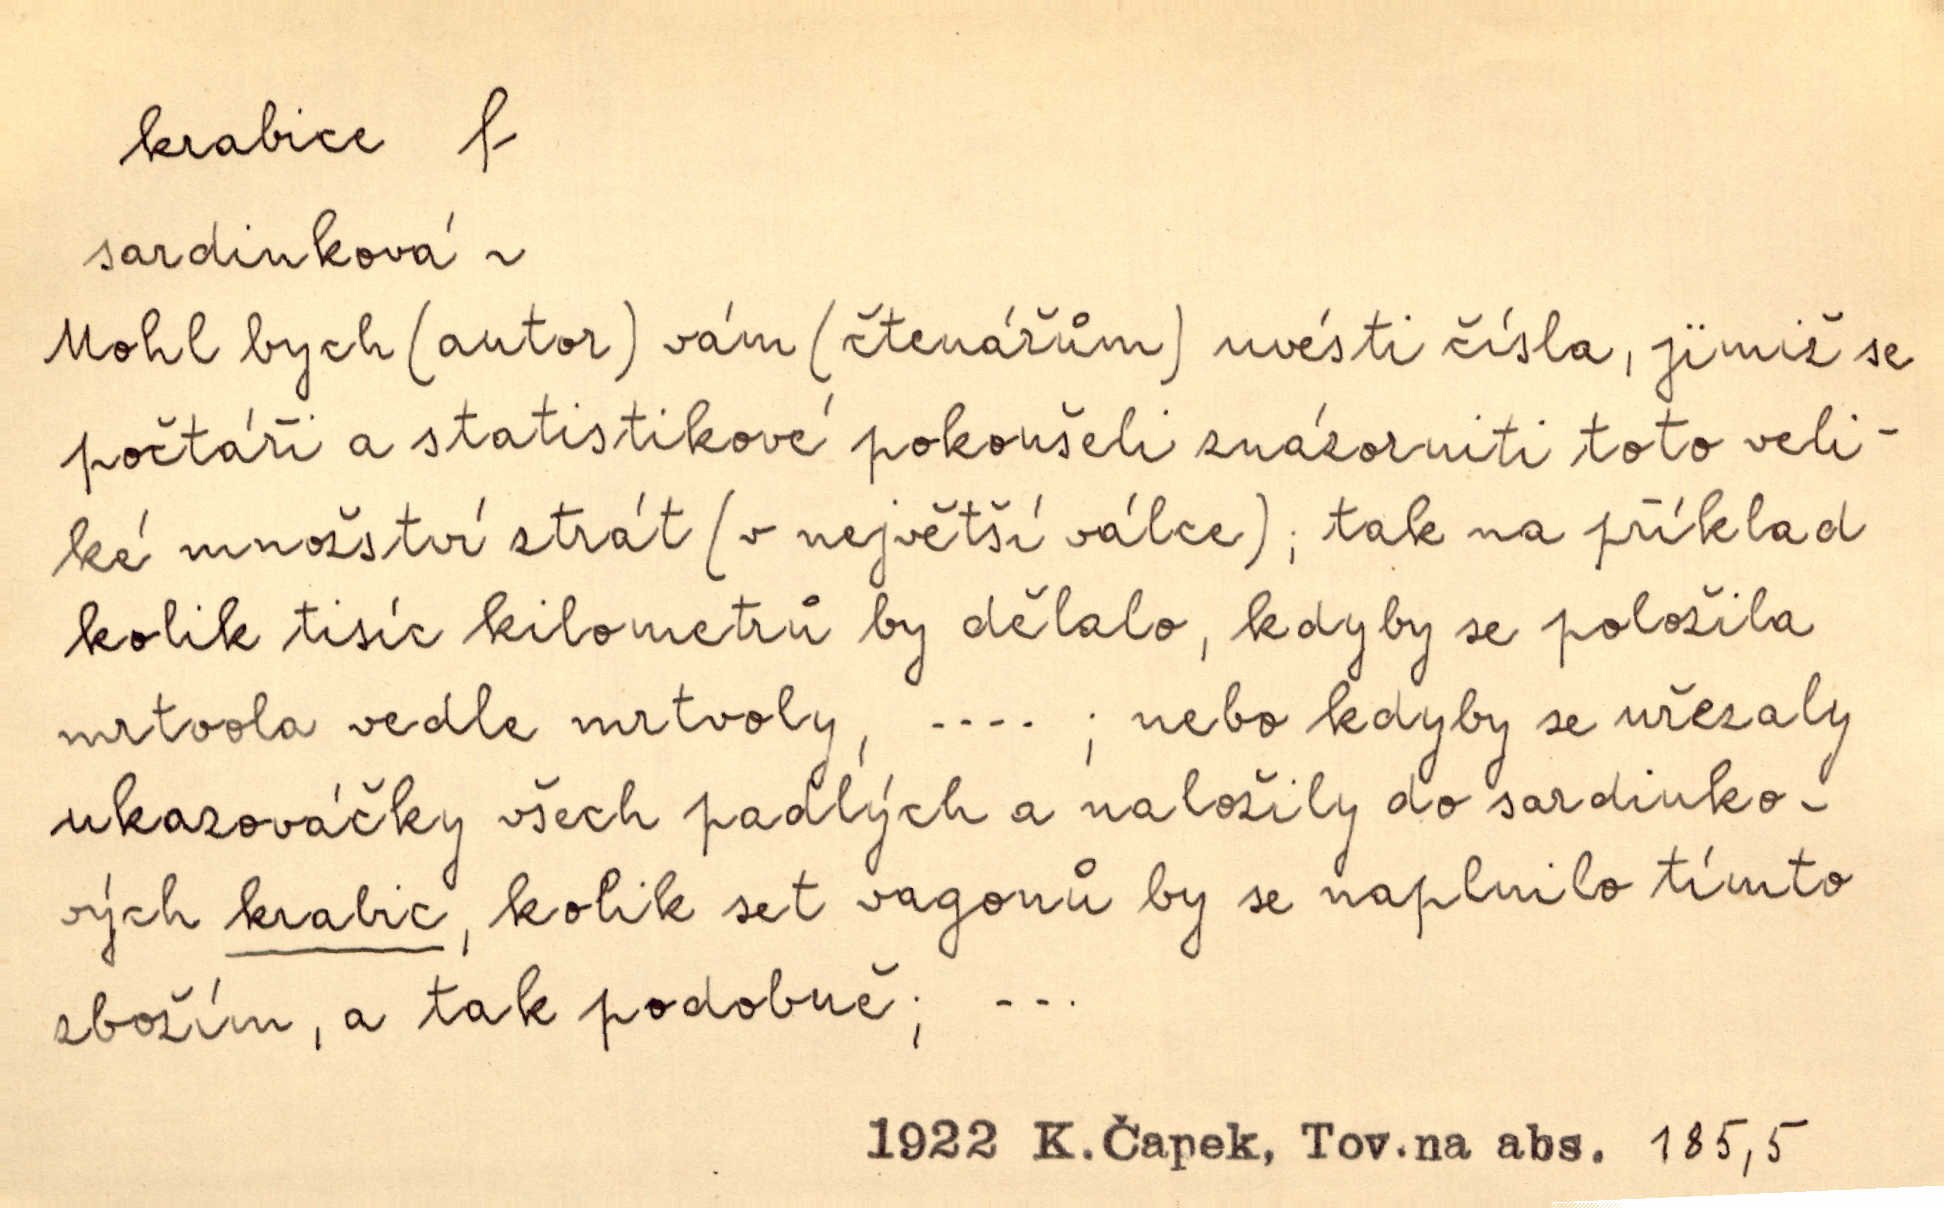 krabice f
sardinková ~
Mohl bych (autor) vám (čtenářům) uvésti čísla, jimiž se
počtáři a statistikové pokoušeli znázorniti toto veli-
ké množství ztrát (v největší válce); tak na příklad
kolik tisíc kilometrů by dělalo, kdyby se položila
mrtvola vedle mrtvoly, ---- ; nebo kdyby se uřezaly
ukazováčky všech padlých a naložily do sardinko-
vých krabic, kolik set vagonů by se naplnilo tímto
zbožím, a tak podobně; ---
1922 K.Čapek, Tov.na abs. 185,5